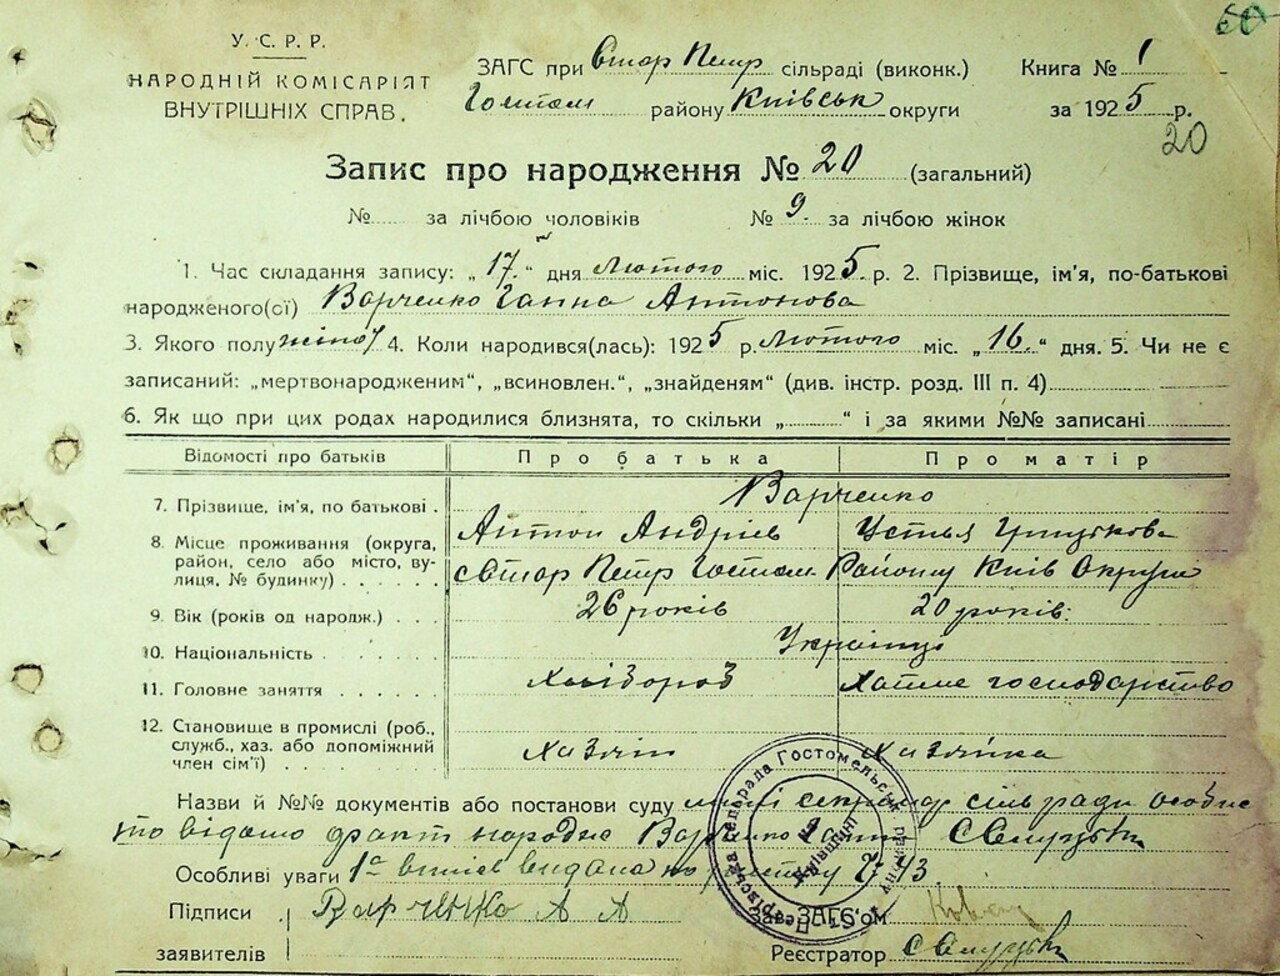 60
У.С.Р.Р.
НАРОДНІЙ КОМІСАРІЯТ
ВНУТРІШНІХ СПРАВ.
ЗАГС при Стар Петр сільраді (виконк.) Книга № 1
Гостом району Київськ округи за 1925 р.
20
Запис про народження № 20 (загальний)
№ за лічбою чоловіків № 9. за лічбою жінок
1. Час складання запису: „17.“ дня Лютого міс. 1925. р. 2. Прізвище, ім'я, по-батькові
народженого(сї) Варченко Ганна Антонова
3. Якого полу жіноч 4. Коли народився(лась): 1925 р. Лютого міс. „16.“ дня. 5. Чи не є
записаний: „мертвонародженим“, „всиновлен.“, „знайденям“ (див. інстр. розд. III п. 4)
6. Як що при цих родах народилися близнята, то скільки „ “ і за якими №№ записані
Відомості про батьків Про батька Про матір
7. Прізвище, ім'я, по батькові . Варченко
Антон Андріїв Устья Грицькова
8. Місце проживання (округа, район, село або місто, вулиця, № будинку) Стар Петр Гостом. Району Київ Округи
9. Вік (років од народж.) . . . 26 років 20 років.
10. Національність Українці
11. Головне заняття Хлібороб хатнє господарство
12. Становище в промислі (роб., служб., хаз. або допоміжний член сім'ї) Хазяїн Хазяйка
Назви й №№ документів або постанови суду мині секретар сільради особис
то відомо факт народже Варченко Ганни
Особливі уваги 1а випись видана по
Підписи Варченко А А Зав. ЗАГС'ом
заявителів Реєстратор
Петрівська сельрада Гостомельськ. району
на Київщині